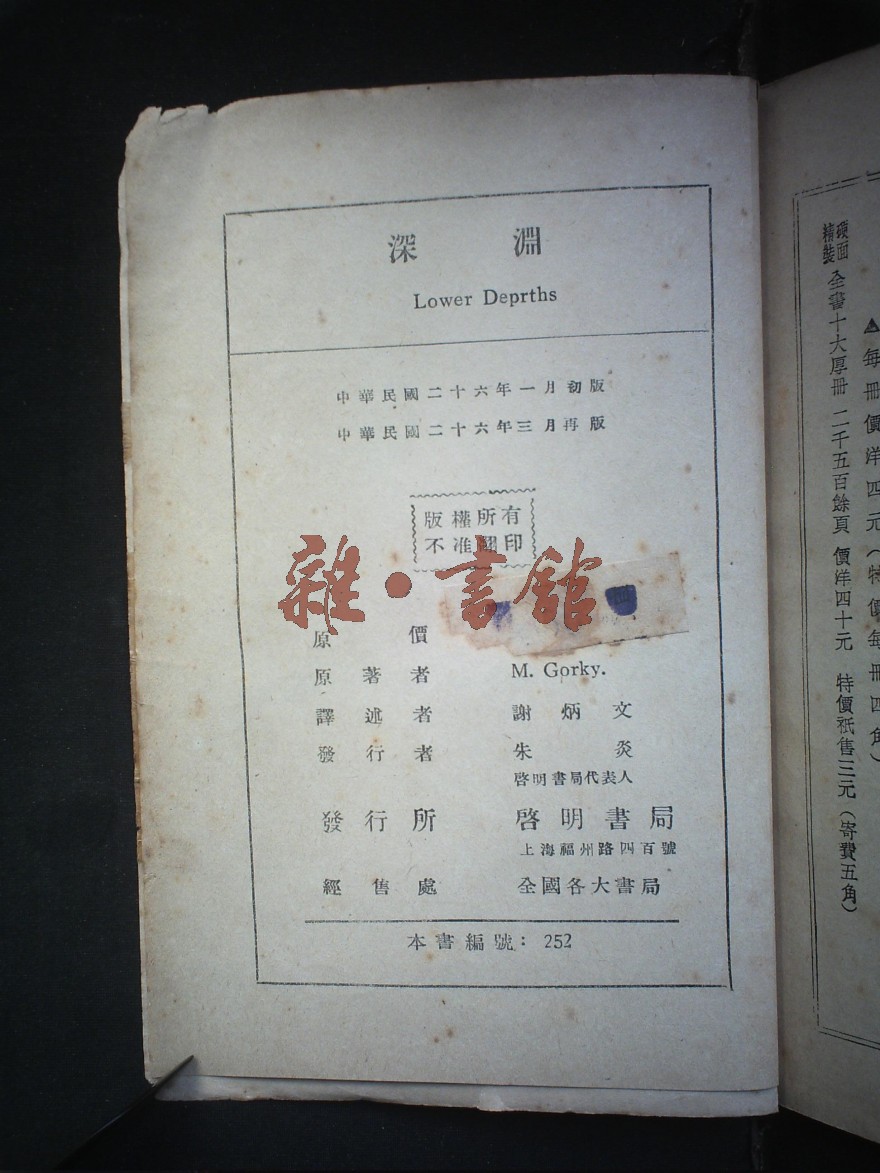 深淵
Lower Deprths
中華民國二十六年一月初版
中華民國二十六年三月再版
版權所有
不准翻印
雜·書館
原價
原著者 M. Gorky.
譯述者 謝炳文
發行者 朱炎
啓明書局代表人
發行所 啓明書局
上海福州路四百號
經售處 全國各大書局
本書編號：252
▲每冊價洋四元（特價每冊四角）
硬面精裝 全書十大厚冊 二千五百餘頁 價洋四十元 特價祇售三元（寄費五角）